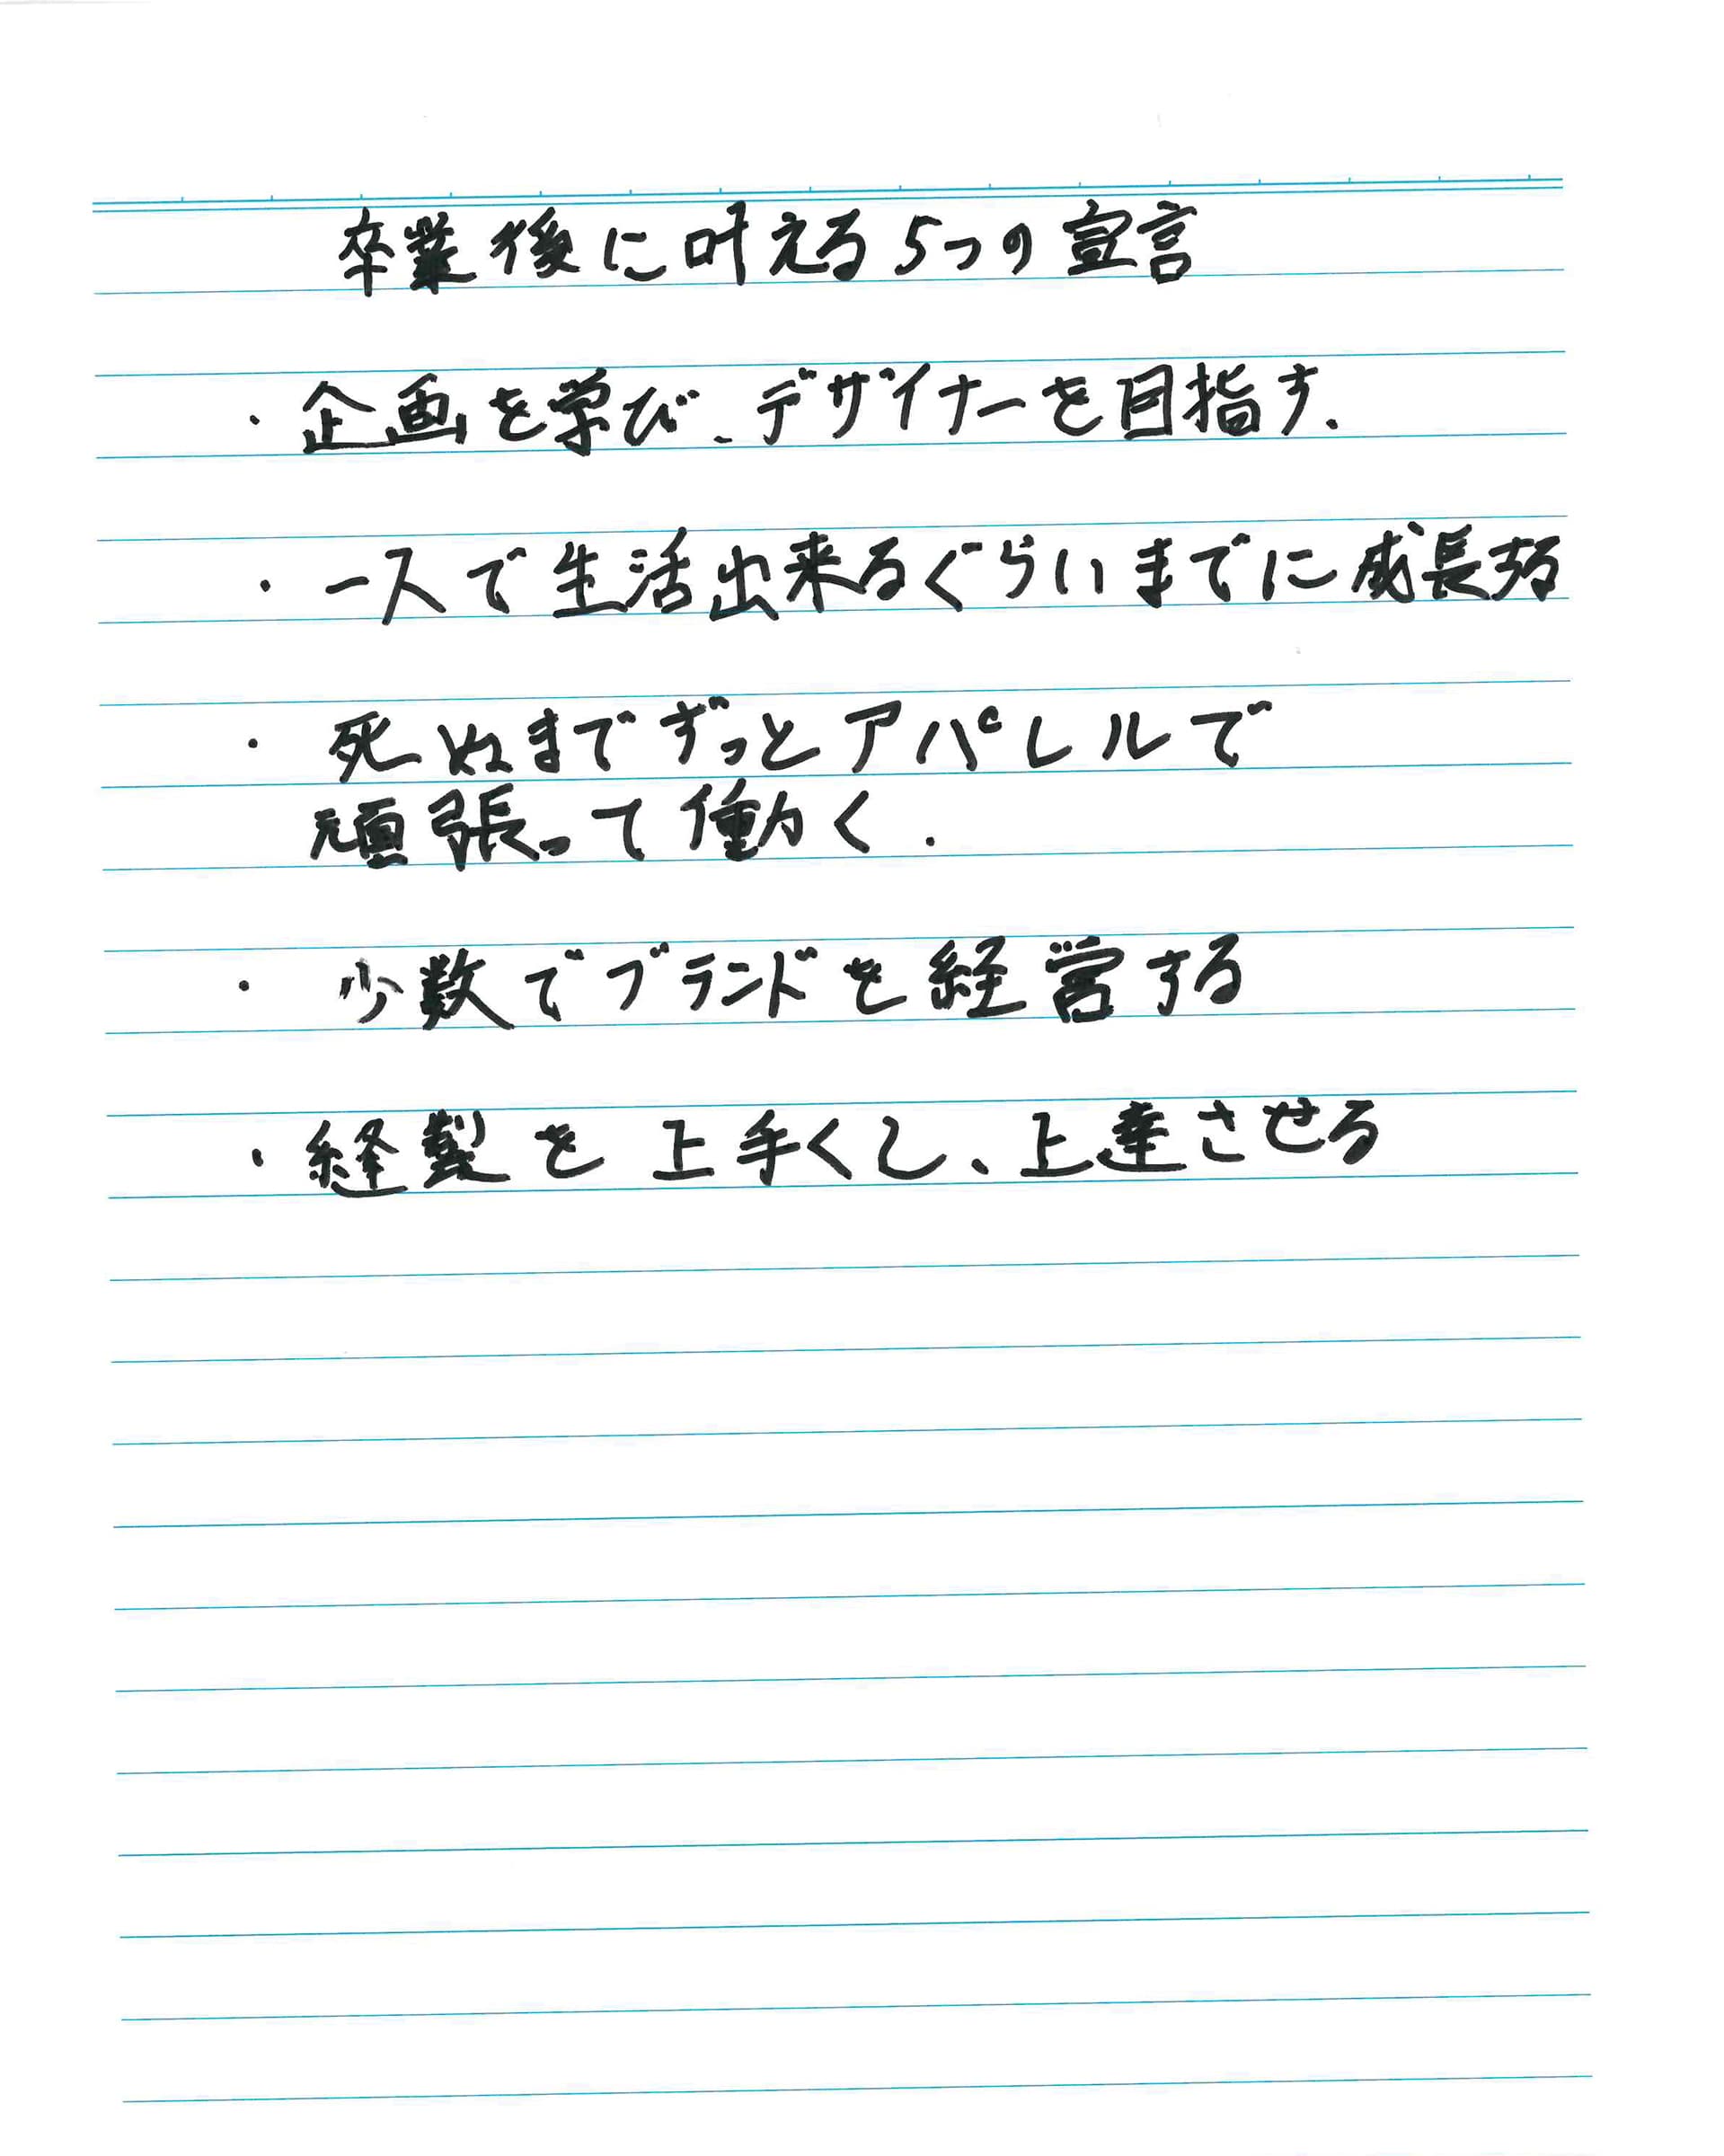 卒業後に叶える5つの宣言
・企画を学び、デザイナーを目指す.
・一人で生活出来るぐらいまでに成長する
・死ぬまでずっとアパレルで
頑張って働く.
・少数でブランドを経営する
・縫製を上手くし、上達させる